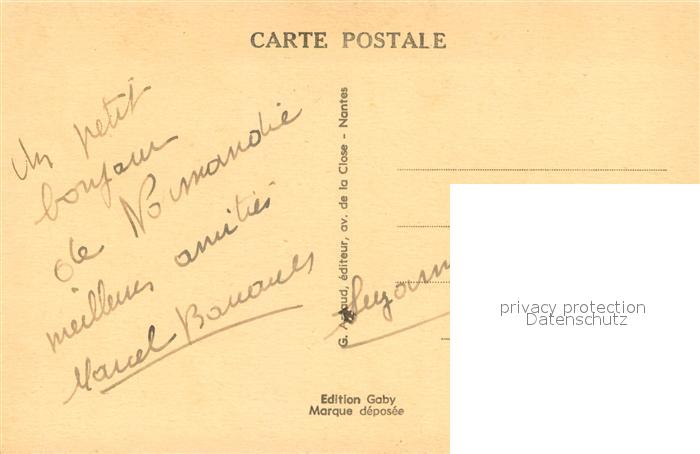 CARTE POSTALE
Un petit
bonjour
de Normandie
meilleures amitiés
Marcel
G. Artaud, éditeur, av. de la Close - Nantes
Edition Gaby
Marque déposée
privacy protection
Datenschutz